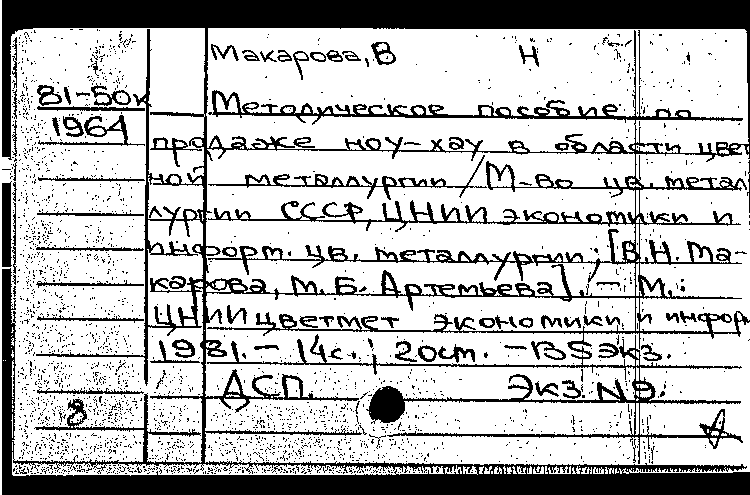 Макарова, В Н
81-50к Методическое пособие по
1964
продаже ноу-хау в области цвет
ной металлургии / М-во цв. метал
лургии СССР, ЦНИИ экономики и
информ. цв. металлургии; [В.Н. Ма-
карова, М.Б. Артемьева]. - М.:
ЦНИИцветмет экономики и информ
1981. - 14с.; 20см. - 135экз.
ДСП. Экз. N 9.
8